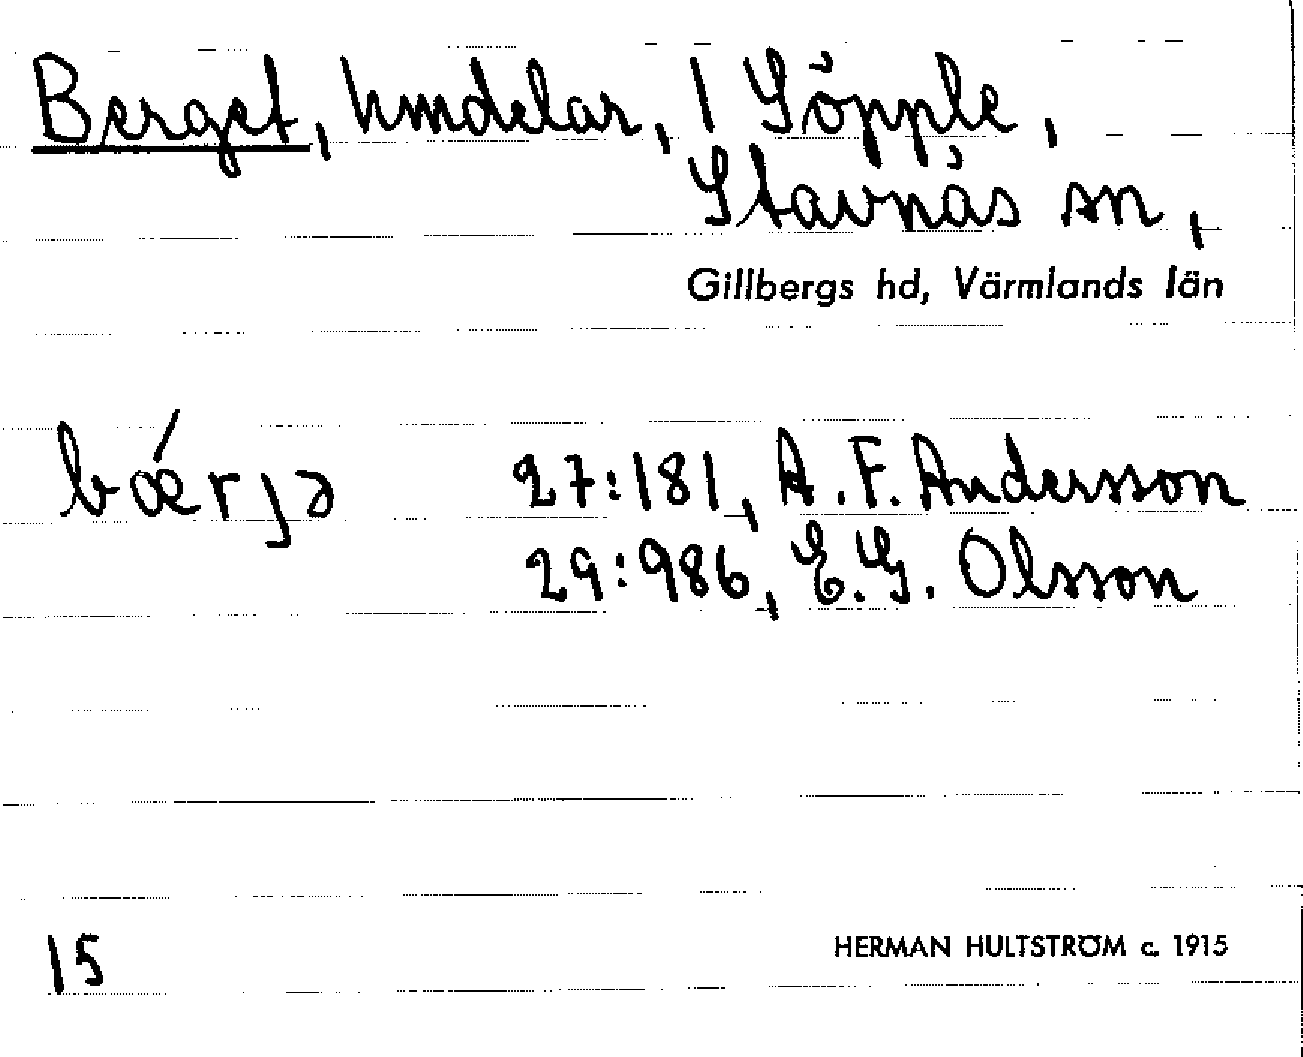 Berget, hmdelar, 1 Söpple,
Stavnäs sn,
Gillbergs hd, Värmlands län
bǽrjə 27:181, A. F. Andersson
29:986, E. G. Olsson
15
HERMAN HULTSTRÖM c. 1915